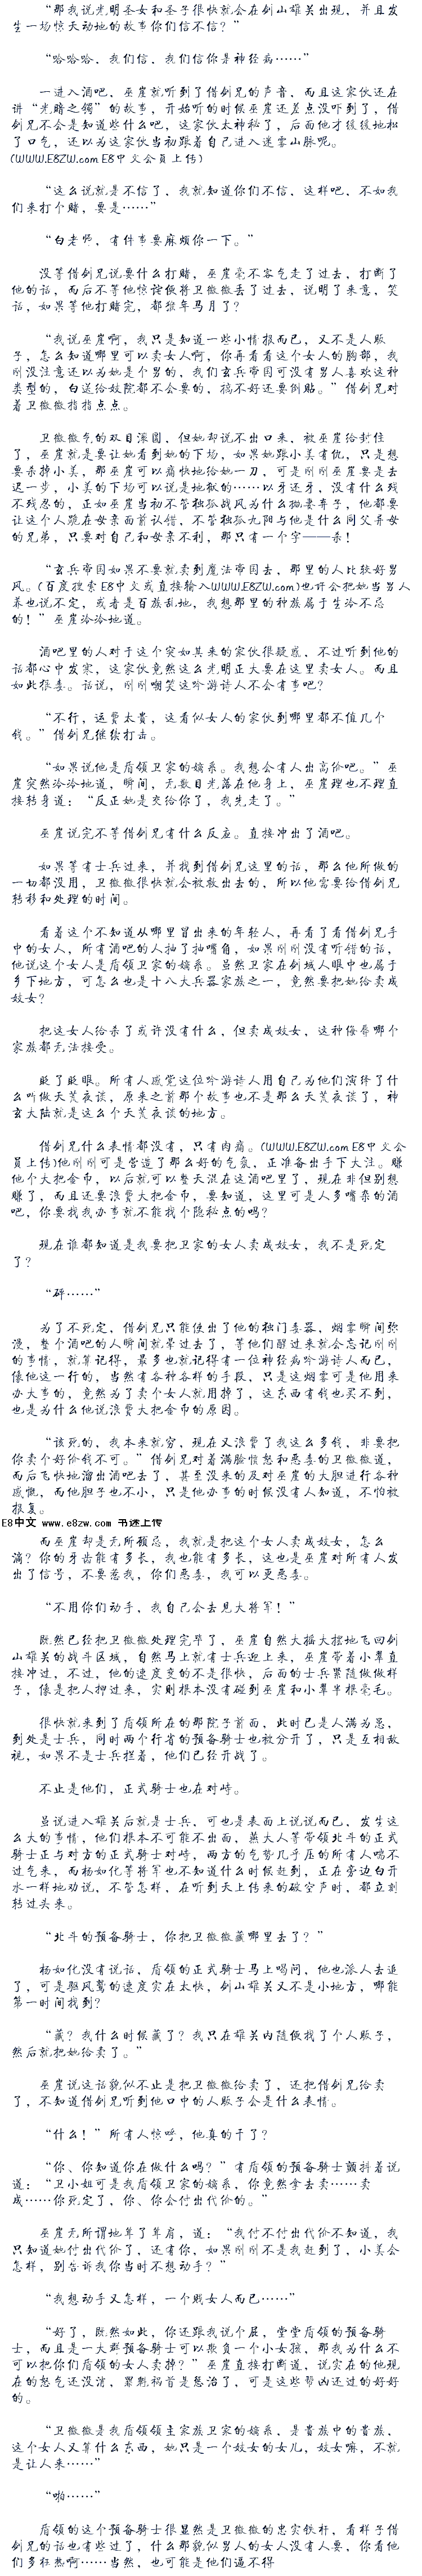 “那我说光明圣女和圣子很快就会在剑山雄关出现，并且发
生一场惊天动地的故事你们信不信？”
“哈哈哈，我们信，我们信你是神经病……”
一进入酒吧，巫崖就听到了借剑兄的声音，而且这家伙还在
讲“光暗之镯”的故事，开始听的时候巫崖还差点没吓到了，借
剑兄不会是知道些什么吧，这家伙太神秘了，后面他才缓缓地松
了口气，还以为这家伙当初跟着自己进入迷雾山脉呢。
(WWW.E8ZW.com E8中文会員上传)
“这么说就是不信了，我就知道你们不信，这样吧，不如我
们来打个赌，要是……”
“白老师，有件事要麻烦你一下。”
没等借剑兄说要什么打赌，巫崖毫不客气走了过去，打断了
他的话，而后不等他惊诧便将卫微微丢了过去，说明了来意，笑
话，如果等他打赌完，都猴年马月了？
“我说巫崖啊，我只是知道一些小情报而已，又不是人贩
子，怎么知道哪里可以卖女人啊，你再看看这个女人的胸部，我
刚没注意还以为她是个男的，我们玄兵帝国可没有男人喜欢这种
类型的，白送给妓院都不会要的，搞不好还要倒贴。”借剑兄对
着卫微微指指点点。
卫微微气的双目深圆，但她却说不出口来，被巫崖给封住
了，巫崖就是要让她看到她的下场，如果她跟小美有仇，只是想
要杀掉小美，那巫崖可以痛快地给她一刀，可是刚刚巫崖要是去
迟一步，小美的下场可以说是地狱的……以牙还牙，没有什么残
不残忍的，正如巫崖当初不管独孤战风为什么抛妻弃子，他都要
让这个人跪在母亲面前认错，不管独孤九阳与他是什么同父异母
的兄弟，只要对自己和母亲不利，那只有一个字——杀！
“玄兵帝国如果不要就卖到魔法帝国去，那里的人比较好男
风。(百度搜索 E8中文或直接输入WWW.E8ZW.com)也许会把她当男人
养也说不定，或者是百族乱地，我想那里的种族属于生冷不忌
的！”巫崖冷冷地道。
酒吧里的人对于这个突如其来的家伙很疑惑，不过听到他的
话都心中发寒，这家伙竟然这么光明正大要在这里卖女人。而且
如此狠毒。话说，刚刚嘲笑这吟游诗人不会有事吧？
“不行，运费太贵，这看似女人的家伙到哪里都不值几个
钱。”借剑兄继续打击。
“如果说他是盾领卫家的嫡系。我想会有人出高价吧。”巫
崖突然冷冷地道，瞬间，无数目光落在他身上，巫崖理也不理直
接转身道：“反正她是交给你了，我先走了。”
巫崖说完不等借剑兄有什么反应。直接冲出了酒吧。
如果等有士兵过来，并找到借剑兄这里的话，那么他所做的
一切都没用，卫微微很快就会被救出去的，所以他需要给借剑兄
转移和处理的时间。
看着这个不知道从哪里冒出来的年轻人，再看了看借剑兄手
中的女人，所有酒吧的人抽了抽嘴角，如果刚刚没有听错的话，
他说这个女人是盾领卫家的嫡系。虽然卫家在剑域人眼中也属于
乡下地方，可怎么也是十八大兵器家族之一，竟然要把她给卖成
妓女？
把这女人给杀了或许没有什么，但卖成妓女，这种侮辱哪个
家族都无法接受。
眨了眨眼。所有人感觉这位吟游诗人用自己为他们演绎了什
么叫做天荒夜谈，原来之前那个故事也不是那么天荒夜谈了，神
玄大陆就是这么个天荒夜谈的地方。
借剑兄什么表情都没有，只有肉痛。(WWW.E8ZW.com E8中文会
員上传)他刚刚可是营造了那么好的气氛，正准备出手下大注。赚
他个大把金币，以后就可以整天混在这酒吧里了，现在非但别想
赚了，而且还要浪费大把金币，要知道，这里可是人多嘴杂的酒
吧，你要找我办事就不能找个隐秘点的吗？
现在谁都知道是我要把卫家的女人卖成妓女，我不是死定
了？
“砰……”
为了不死定，借剑兄只能使出了他的独门毒器，烟雾瞬间弥
漫，整个酒吧的人瞬间就晕过去了，等他们醒过来就会忘记刚刚
的事情，就算记得，最多也就记得有一位神经病吟游诗人而已，
像他这一行的，当然有各种各样的手段，只是这烟雾可是他用来
办大事的，竟然为了卖个女人就用掉了，这东西有钱也买不到，
也是为什么他说浪费大把金币的原因。
“该死的，我本来就穷，现在又浪费了我这么多钱，非要把
你卖个好价钱不可。”借剑兄对着满脸愤怒和恶毒的卫微微道，
而后飞快地溜出酒吧去了，甚至没来的及对巫崖的大胆进行各种
感慨，而他胆子也不小，只是他办事的时候没有人知道，不怕被
报复。
E8中文 www.e8zw.com 书迷上传
而巫崖却是无所顾忌，我就是把这个女人卖成妓女，怎么
滴？你的牙齿能有多长，我也能有多长，这也是巫崖对所有人发
出了信号，不要惹我，你们恶毒，我可以更恶毒。
“不用你们动手，我自己会去见大将军！”
既然已经把卫微微处理完毕了，巫崖自然大摇大摆地飞回剑
山雄关的战斗区域，自然马上就有士兵迎上来，巫崖带着小犟直
接冲过，不过，他的速度变的不是很快，后面的士兵紧随做做样
子，像是把人押过来，实则根本没有碰到巫崖和小犟半根毫毛。
很快就来到了盾领所在的那院子前面，此时已是人满为患，
到处是士兵，同时两个行省的预备骑士也被分开了，只是互相敌
视，如果不是士兵拦着，他们已经开战了。
不止是他们，正式骑士也在对峙。
虽说进入雄关后就是士兵，可也是表面上说说而已，发生这
么大的事情，他们根本不可能不出面，燕大人等带领北斗的正式
骑士正与对方的正式骑士对峙，两方的气势几乎压的所有人喘不
过气来，而杨如化等将军也不知道什么时候赶到，正在旁边白开
水一样地劝说，不管怎样，在听到天上传来的破空声时，都立刻
转过头来。
“北斗的预备骑士，你把卫微微藏哪里去了？”
杨如化没有说话，盾领的正式骑士马上喝问，他也派人去追
了，可是驱风鹫的速度实在太快，剑山雄关又不是小地方，哪能
第一时间找到？
“藏？我什么时候藏了？我只在雄关内随便找了个人贩子，
然后就把她给卖了。”
巫崖说这话貌似不止是把卫微微给卖了，还把借剑兄给卖
了，不知道借剑兄听到他口中的人贩子会是什么表情。
“什么！”所有人惊呼，他真的干了？
“你、你知道你在做什么吗？”有盾领的预备骑士颤抖着说
道：“卫小姐可是我盾领卫家的嫡系，你竟然拿去卖……卖
成……你死定了，你、你会付出代价的。”
巫崖无所谓地耸了耸肩，道：“我付不付出代价不知道，我
只知道她付出代价了，还有你，如果刚刚不是我赶到了，小美会
怎样，别告诉我你当时不想动手？”
“我想动手又怎样，一个贱女人而已……”
“好了，既然如此，你还跟我说个屁，堂堂盾领的预备骑
士，而且是一大群预备骑士可以欺负一个小女孩，那我为什么不
可以把你们盾领的女人卖掉？”巫崖直接打断道，说实在的他现
在的怒气还没消，罪魁祸首是惩治了，可是这些帮凶还过的好好
的。
“卫微微是我盾领领主家族卫家的嫡系，是贵族中的贵族，
这个女人又算什么东西，她只是一个妓女的女儿，妓女嘛，不就
是让人来……”
“啪……”
盾领的这个预备骑士很显然是卫微微的忠实铁杆，看样子借
剑兄的话也有些过了，什么那貌似男人的女人没有人要，你看他
们多狂热啊……当然，也可能是他们逼不得